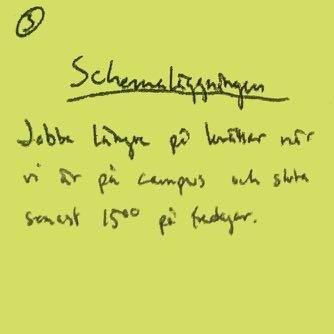 3
Schemaläggningen
Jobba längre på kvällar när
vi är på campus och sluta
senast 15⁰⁰ på fredagar.